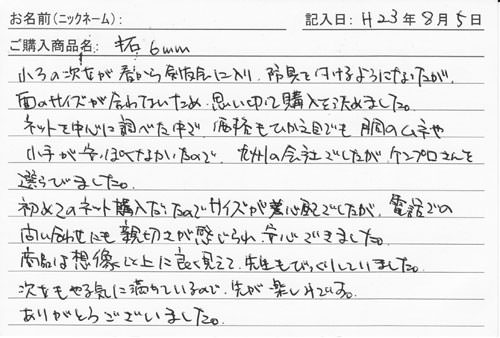 お名前(ニックネーム): 記入日: H23年8月5日
ご購入商品名: 拓6mm
小3の次女が春から剣友会に入り、防具を付けるようになったが、
面のサイズが合わないため、思い切って購入を決めました。
ネットを中心に調べた中で、価格もひかえ目でも、胴のムネや
小手が安っぽくなかったので、九州の会社でしたがケンプロさんを
選らびました。
初めてのネット購入だったのでサイズが心配でしたが、電話での
問い合わせにも親切さが感じられ、安心できました。
商品は想像以上に良く見えて、先生もびっくりしていました。
次女もやる気に満ちているので、先が楽しみです。
ありがとうございました。